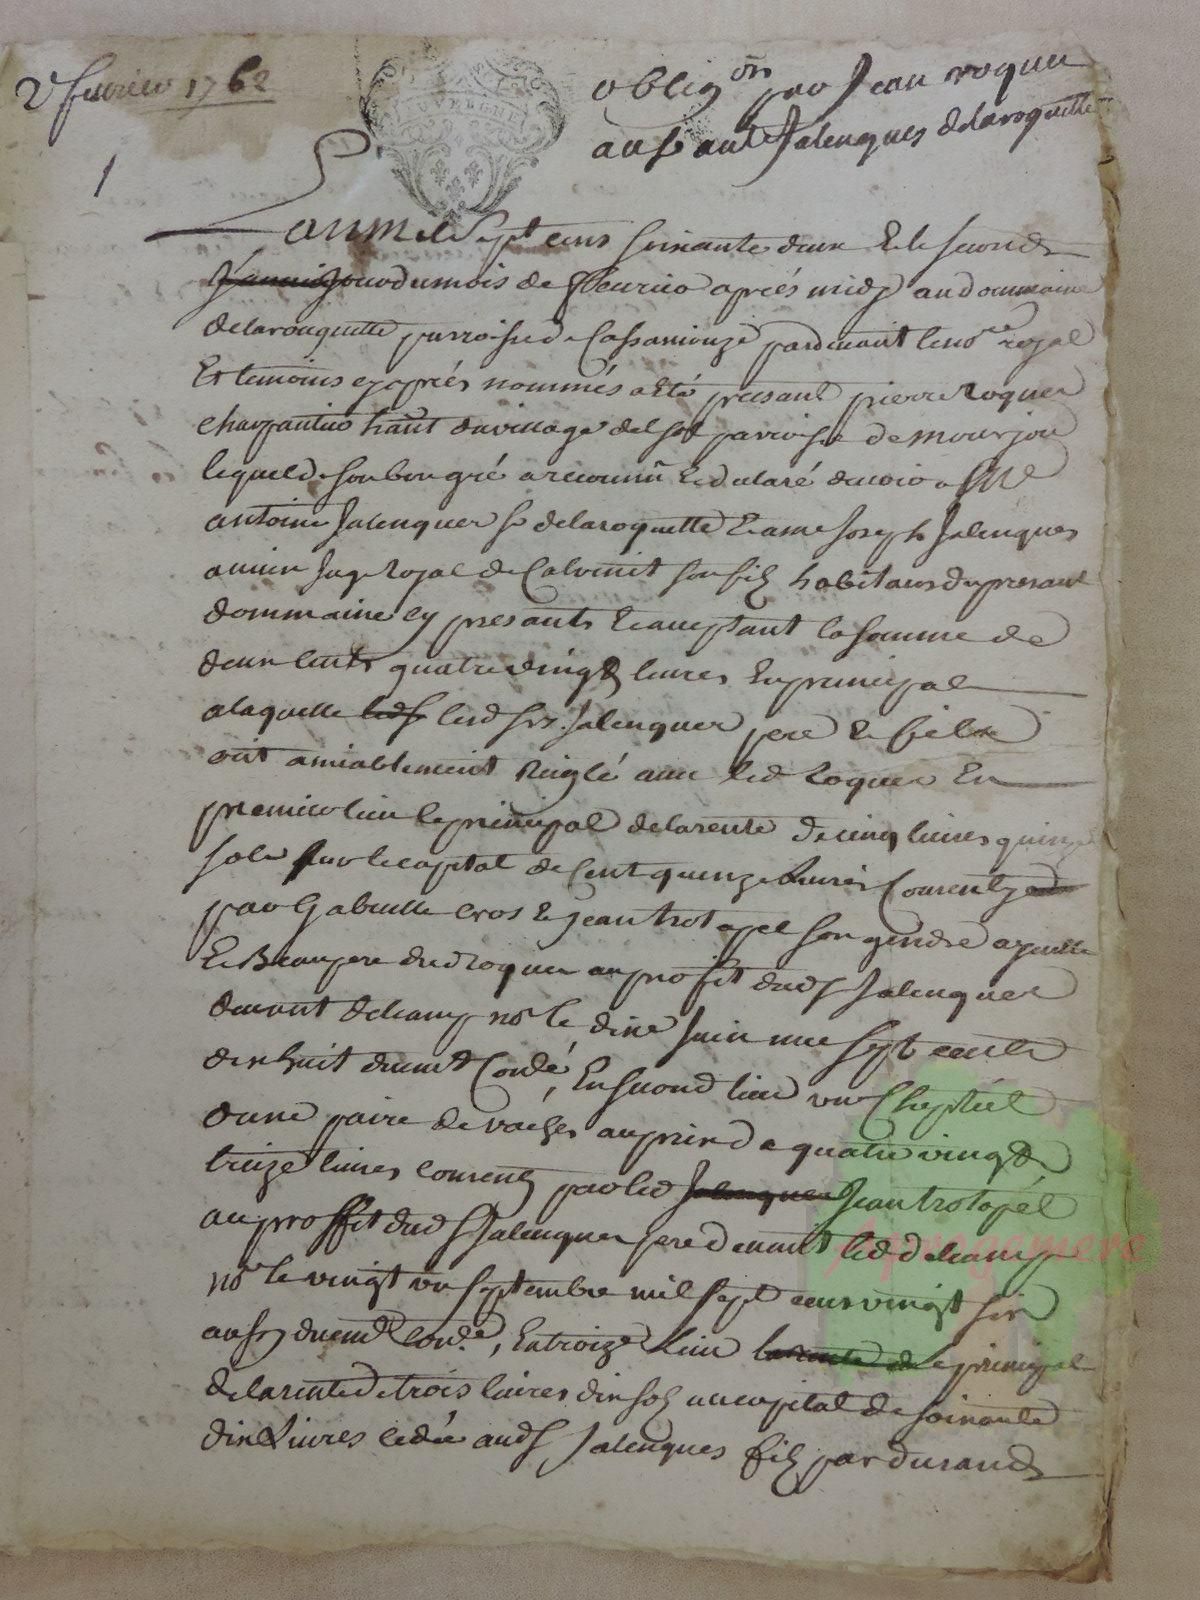 2 fevrier 1762
obligon par Jean roquier
au sr ant Jalenques delaroquette
1
AUVERGNE
Lan mil sept cens soixante deux & le second
janvier jour du mois de fevrier apres midy au dommaine
delarouquette parroisse de Cassaniouze pardevant le nore royal
Et temoins cy apres nommés a eté presant pierre Roquier
charpantier hant du village del sol parroisse de mourjou
lequel de son bon gré a reconnu & declaré devoir a Me
antoine Jalenques sr delaroquette & a me Joseph Jalenques
ancien Juge Royal de Calvinet son fils habitans du presant
dommaine cy presants & acceptant la somme de
deux cents quatre vingt livres En principal
a laquelle leds lesd srs. Jalenques pere & fils
ont amiablement Reiglé avec led Roquier En
premier lieu le principal de la rente de cinq livres quinze
sols sur le capital de Cent quinze Livres Consenty
par Gabrielle cros & jean trotapel son gendre ayeulle
& Beaupere dud Roquier au profit dud s Jalenques
devant delcamp nore le dixe Juin mil sept cents
dix huit duemt Conlé, En second lieu un Cheptel
dune paire de vaches au prix de quatre vingt
treize livres consenty par led Jalenques Jean trotapel
au proffit dud s Jalenques pere devant led delcamp
nore le vingt un septembre mil sept cens vingt six
aussy duemt conle, En troize lieu la rente de le principal
de la rente de trois livres dix sols au capital de soixante
dix Livres cedée aud s Jalenques fils par durand
Aprogemere